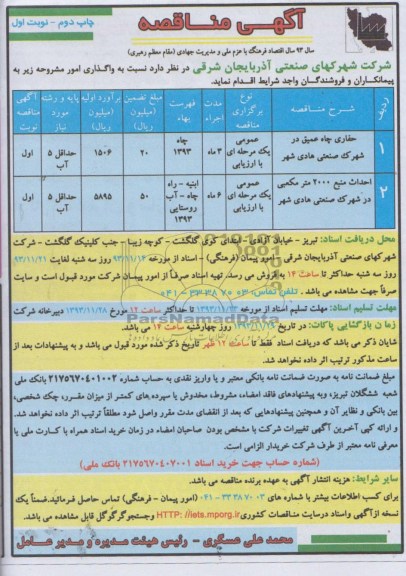 آگهی مناقصه
چاپ دوم - نوبت اول
سال ۹۳ سال اقتصاد فرهنگ با عزم ملی و مدیریت جهادی (مقام معظم رهبری)
شرکت شهرکهای صنعتی آذربایجان شرقی در نظر دارد نسبت به واگذاری امور مشروحه زیر به
پیمانکاران و فروشندگان واجد شرایط اقدام نماید.
ردیف | شرح مناقصه | نوع برگزاری مناقصه | مدت اجراء | فهرست بهاء | مبلغ تضمین (میلیون ریال) | برآورد اولیه (میلیون ریال) | پایه و رشته مورد نیاز | آگهی مناقصه نوبت
۱ | حفاری چاه عمیق در شهرک صنعتی هادی شهر | عمومی یک مرحله ای با ارزیابی | ۳ ماه | چاه ۱۳۹۳ | ۲۰ | ۱۵۰۶ | حداقل ۵ آب | اول
۲ | احداث منبع ۲۰۰۰ متر مکعبی در شهرک صنعتی هادی شهر | عمومی یک مرحله ای با ارزیابی | ۶ ماه | ابنیه - راه چاه - آب روستایی ۱۳۹۳ | ۵۰ | ۵۸۹۵ | حداقل ۵ آب | اول
محل دریافت اسناد: تبریز - خیابان آزادی - ابتدای کوی گلگشت - کوچه زیبا - جنب کلینیک گلگشت - شرکت
شهرکهای صنعتی آذربایجان شرقی (امور پیمان (فرهنگی) - اسناد از مورخه ۹۳/۱۱/۱۴ روز سه شنبه لغایت ۹۳/۱۱/۲۱
روز سه شنبه حداکثر تا ساعت ۱۴ به فروش می رسد. تهیه اسناد صرفاً از امور پیمان شرکت مورد قبول است و سایت
صرفاً جهت مشاهده می باشد. تلفن تماس: ۰۳ ۷۰ ۳۸ ۳۳-۰۴۱
مهلت تسلیم اسناد: مهلت تسلیم اسناد از مورخه تا حداکثر ساعت ۱۲ مورخ ۱۳۹۳/۱۱/۲۸ دبیرخانه شرکت
زمان بازگشایی پاکات: در تاریخ روز چهارشنبه ساعت ۱۴ می باشد.
شایان ذکر می باشد که دریافت اسناد فقط تا ساعت ۱۲ ظهر تاریخ ذکر شده مورد قبول می باشد و به پیشنهادات بعد از
ساعت مذکور ترتیب اثر داده نخواهد شد.
ParsNamadData
مبلغ ضمانت نامه به صورت ضمانت نامه بانکی معتبر و یا واریز نقدی به حساب شماره ۲۱۷۵۶۷۰۴۰۱۰۰۲ بانک ملی
شعبه ششگلان تبریز، وبه پیشنهادهای فاقد امضاء، مشروط، مخدوش یا سپرده‌های کمتر از میزان مقرر، چک شخصی،
بین بانکی و نظایر آن و همچنین پیشنهادهایی که بعد از انقضای مدت مقرر واصل شود مطلقاً ترتیب اثر داده نخواهد شد.
و ارائه کپی آخرین آگهی تغییرات شرکت با مشخص بودن صاحبان امضاء در زمان خرید اسناد همراه با کارت ملی یا
معرفی نامه معتبر از طرف شرکت خریدار الزامی است.
(شماره حساب جهت خرید اسناد ۲۱۷۵۶۷۰۴۰۷۰۰۱ بانک ملی)
سایر شرایط: هزینه انتشار آگهی به عهده برنده مناقصه می باشد.
برای کسب اطلاعات بیشتر با شماره های ۰۳ ۷۰ ۳۸ ۳۳-۰۴۱ (امور پیمان - فرهنگی) تماس حاصل فرمائید. ضمناً یک
نسخه از آگهی واسناد درسایت مناقصات کشوری HTTP: //iets.mporg.ir وجستجوگر گوگل قابل مشاهده می باشد.
محمد علی عسگری - رئیس هیئت مدیره و مدیر عامل